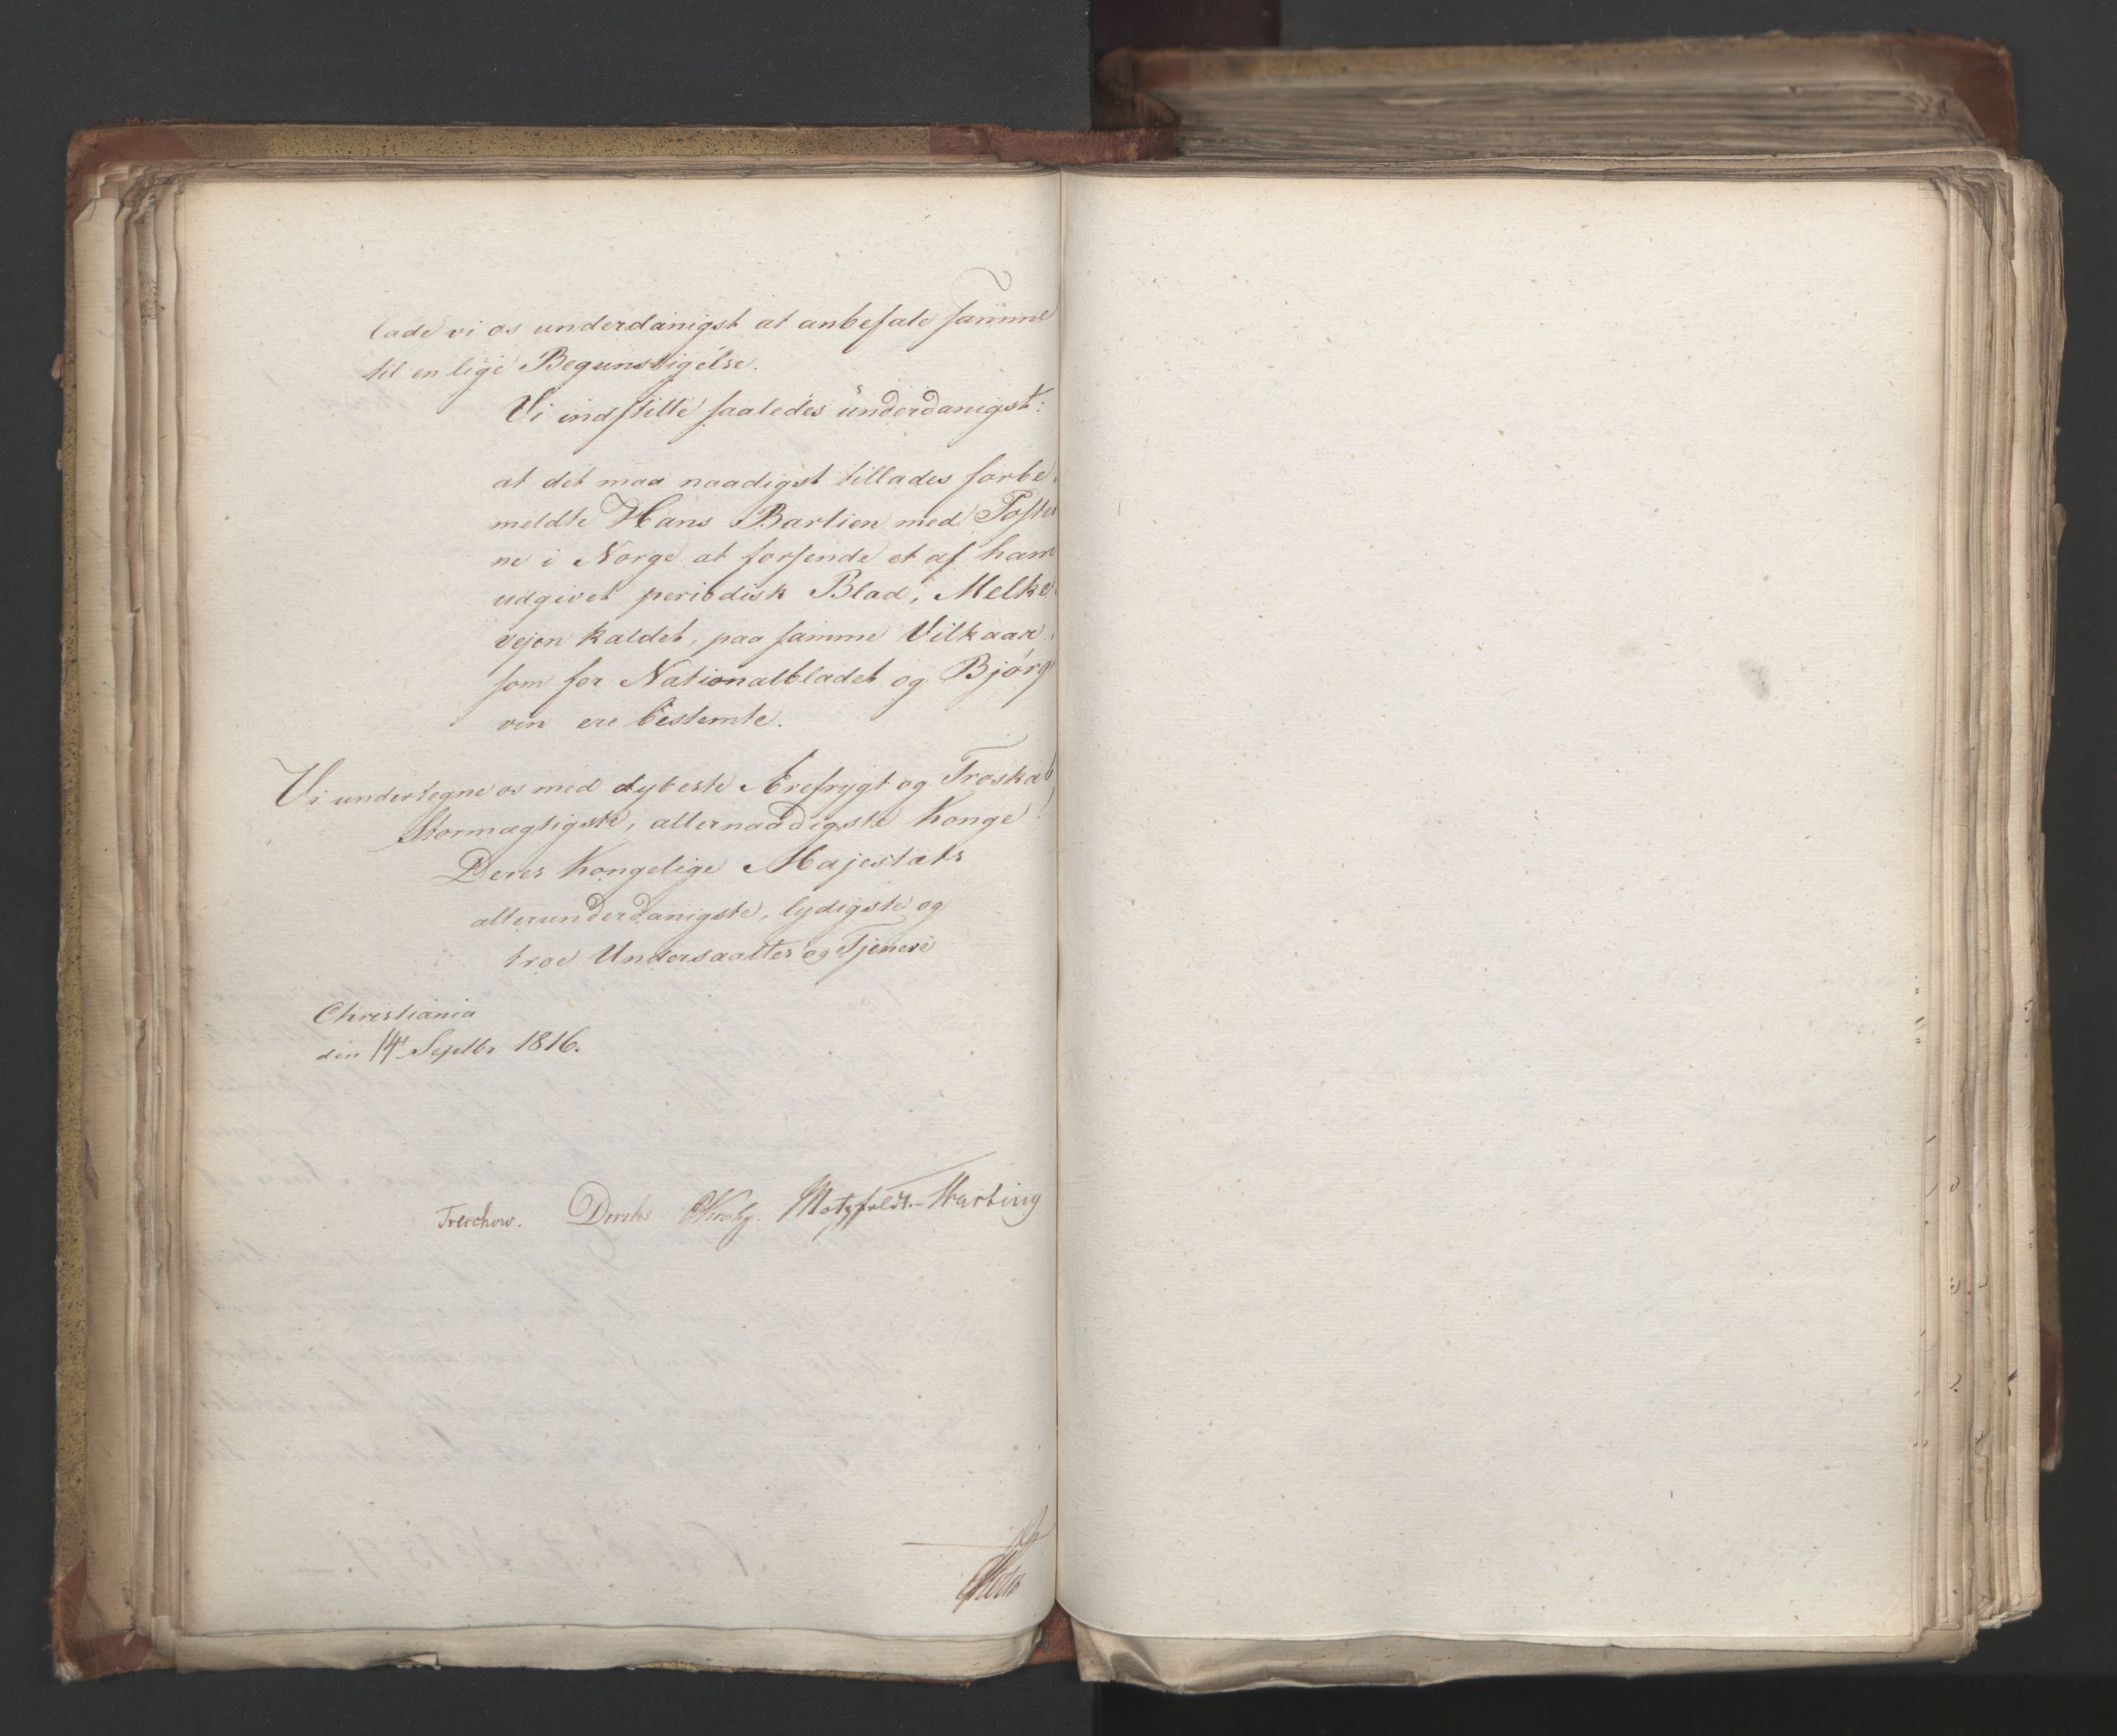 lade vi os underdanigst at anbefale samme
til en lige Begunstigelse.
Vi indstille saaledes underdanigst:
at det maa naadigst tillades forbe-
meldte Hans Barlien med Poster
ne i Norge at forsende et af ham
udgivet periodisk Blad, Melke-
vejen kaldet, paa samme Vilkaar
som for Nationalbladet og Bjørg
vin ere bestemte.
Vi undertegne os med dybeste Ærefrygt og Troskab
Stormægtigste, allernaadigste Konge!
Deres Kongelige Majestæts
allerunderdanigste, lydigste og
troe Undersaatter og Tjenere
Christiania
den 14 Septbr 1816.
Treschow. Diriks Krohg. Motzfeldt. Harbing
Holst